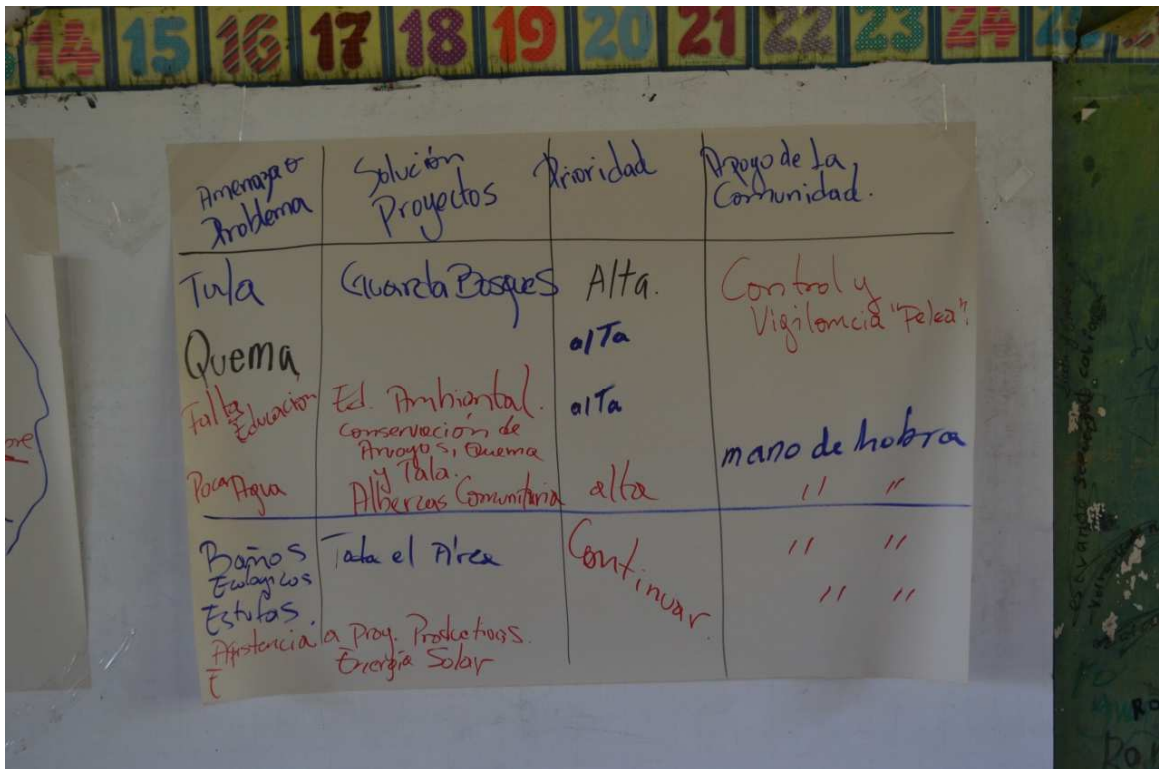 14 15 16 17 18 19 20 21 22 23 24
Amenaza o
Problema
Solución
Proyectos
Prioridad
Apoyo de La
Comunidad.
Tala
Guarda Bosques
Alta.
Control y
Vigilancia "Pelea".
Quema
alTa
Falta
Educacion
Ed. Ambiantal.
conservación de
Arroyos, Quema
y Tala.
alTa
mano de hobra
Poca Agua
Albercas Comunitaria
alta
" "
Baños
Ecologicos
Estufas.
Toda el Área
Continuar
" "
" "
a Proy. Productivos.
Energia Solar
E